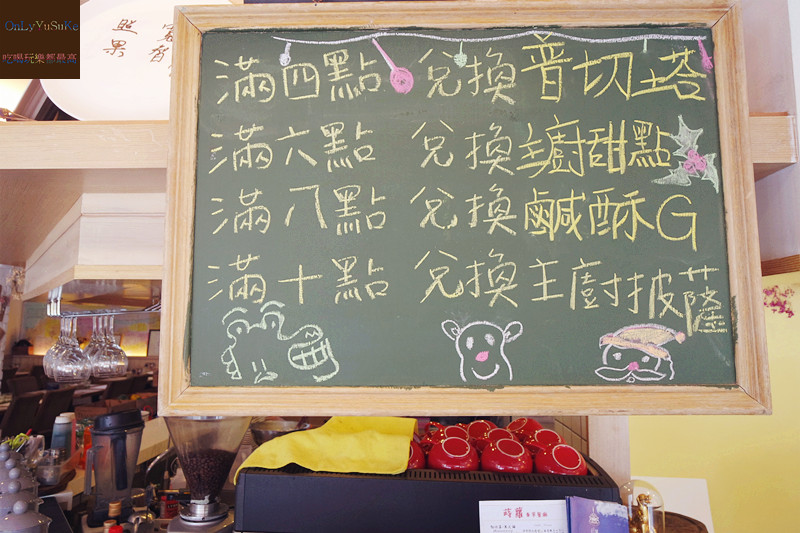 OnLyYuSuKe
吃喝玩樂都最高
滿四點 兌換普切塔
滿六點 兌換主廚甜點
滿八點 兌換鹹酥G
滿十點 兌換主廚披薩